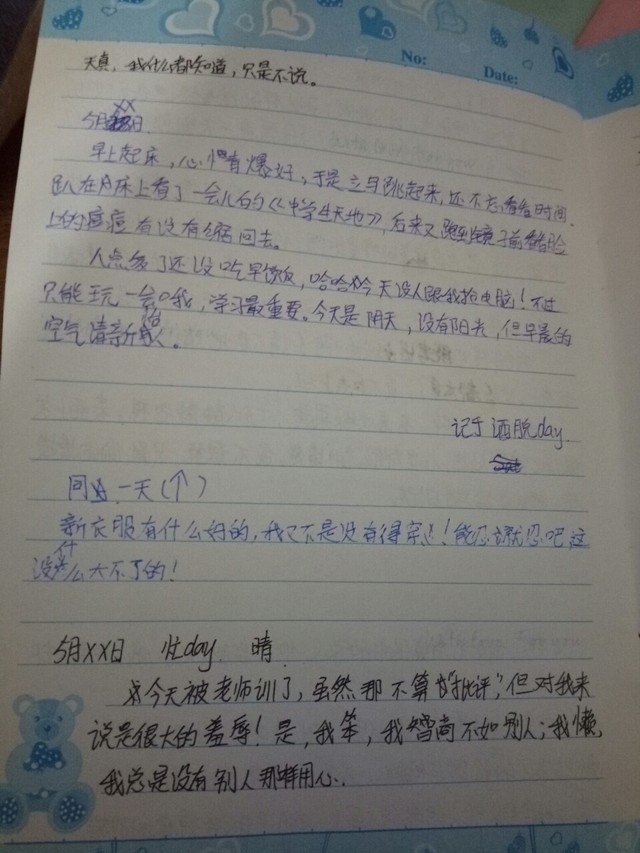 No:
Date:
天真，我什么都知道，只是不说。
5月XX日
早上起床，心情有爆好，于是立马跳起来，还不忘看看时间.
趴在床上看了一会儿的《中学生天地》，后来又跑到镜子前看看脸
上的痘痘有没有缩回去。
八点多了还没吃早饭，哈哈今天没人跟我抢电脑！不过
只能玩一会哦，学习最重要。今天是阴天，没有阳光，但早晨的
空气清新怡人。
记于洒脱day.
同一天(↑)
新衣服有什么好的，我又不是没有得穿！能忍就忍吧，这
没什么大不了的！
5月XX日 灶day. 晴.
今天被老师训了，虽然那不算“批评”，但对我来
说是很大的羞辱！是，我笨，我智商不如别人；我懒，
我总是没有别人那样用心.